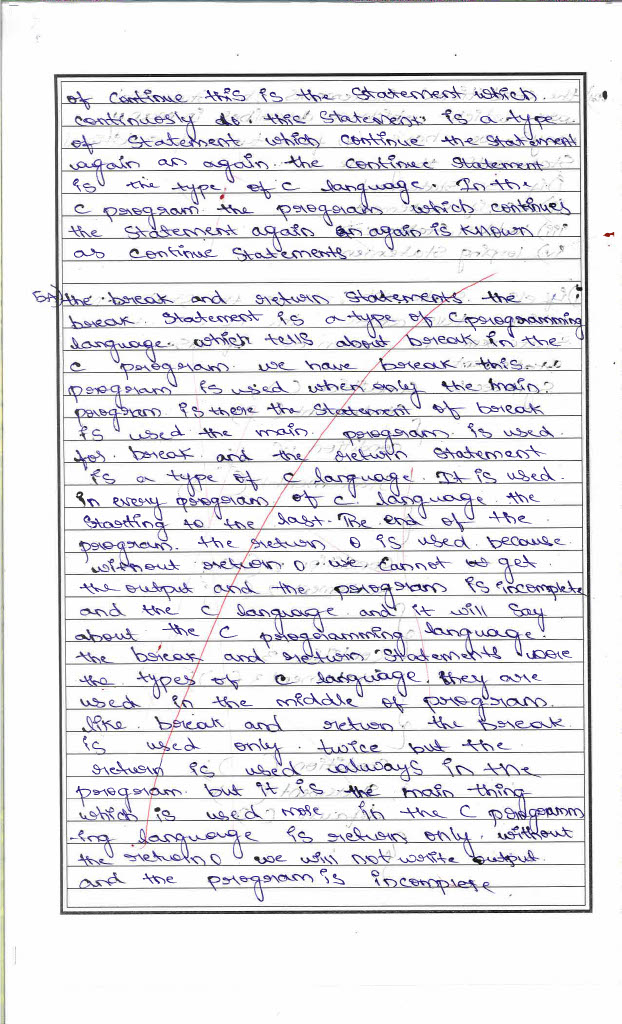 of continue this is the statement which
continuosly do. this statement is a type
of statement which continue the statement
again an again. the continue statement
is the type of C language. In the
C program the program which continues
the statement again an again is known
as continue statements
5A) the break and return statements. the
break statement is a type of C programming
language. which tells about break in the
C program. we have break this
program is used when only the main
program is there the statement of break
is used the main program is used
for break and the return statement
is a type of C language. It is used
in every program of C language. the
starting to the last. The end of the
program. the return 0 is used because
without return 0 we cannot get
the output and the program is incomplete
and the C language and it will say
about the C programming language.
the break and return statements were
the types of C language. they are
used in the middle of program.
like break and return the break
is used only twice but the
return is used always in the
program. but it is the main thing
which is used more in the C programm
-ing language is return only. without
the return 0 we will not write output
and the program is incomplete